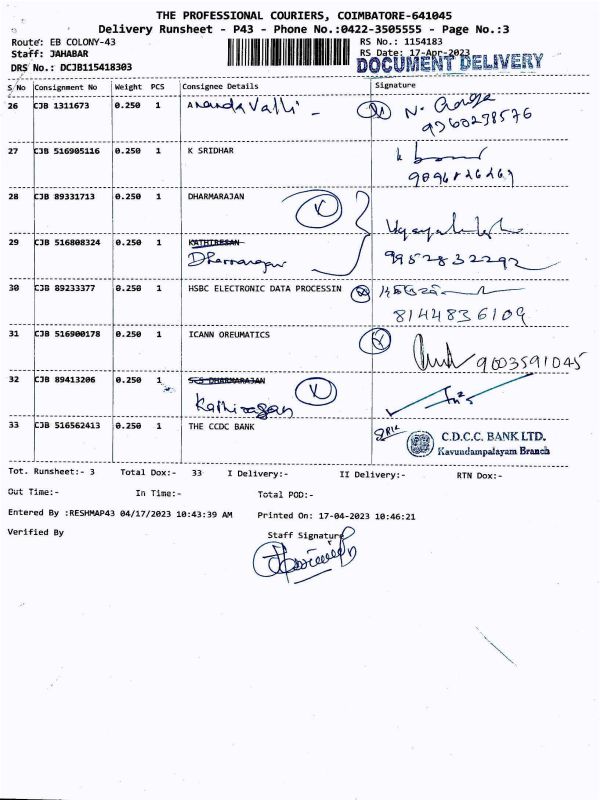 THE PROFESSIONAL COURIERS, COIMBATORE-641045
Delivery Runsheet - P43 - Phone No.:0422-3505555 - Page No.:3
Route: EB COLONY-43
RS No.: 1154183
Staff: JAHABAR
RS Date: 17-Apr-2023
DRS No.: DCJB115418303
DOCUMENT DELIVERY
S/No Consignment No Weight PCS Consignee Details Signature
26 CJB 1311673 0.250 1 Ananda Valli -
9360238576
27 CJB 516905116 0.250 1 K SRIDHAR
28 CJB 89331713 0.250 1 DHARMARAJAN
29 CJB 516808324 0.250 1 KATHIRESAN
9952832292
30 CJB 89233377 0.250 1 HSBC ELECTRONIC DATA PROCESSIN
8144836109
31 CJB 516900178 0.250 1 ICANN OREUMATICS
9003591045
32 CJB 89413206 0.250 1 SCS DHARMARAJAN
33 CJB 516562413 0.250 1 THE CCDC BANK
C.D.C.C. BANK LTD.
Kavundampalayam Branch
Tot. Runsheet:- 3 Total Dox:- 33 I Delivery:- II Delivery:- RTN Dox:-
Out Time:- In Time:- Total POD:-
Entered By :RESHMAP43 04/17/2023 10:43:39 AM Printed On: 17-04-2023 10:46:21
Verified By Staff Signature